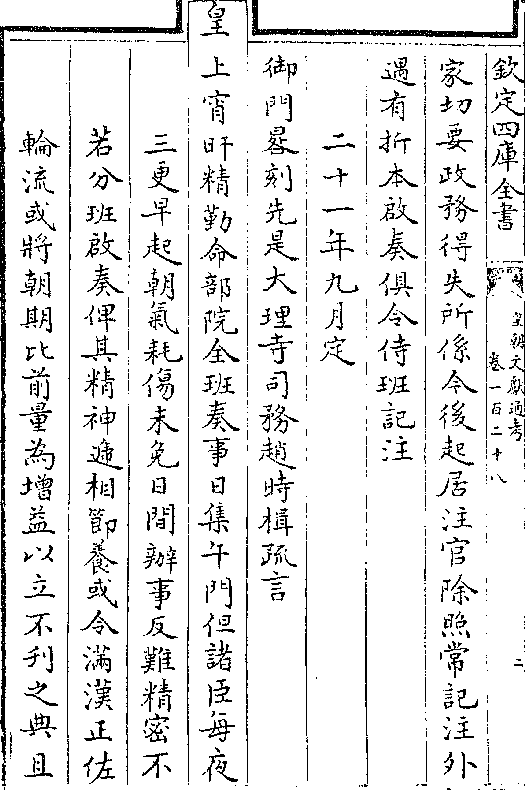 欽定四庫全書
皇朝文獻通考
卷一百二十八
二
家切要政務得失所係令後起居注官除照常記注外
遇有折本啟奏俱令侍班記注
二十一年九月定
御門晷刻先是大理寺司務趙時楫疏言
皇上宵旰精勤命部院全班奏事日集午門但諸臣每夜
三更早起朝氣耗傷未免日間辦事反難精密不
若分班啟奏俾其精神遞相節養或令滿漢正佐
輪流或將朝期比前量為增益以立不刋之典且